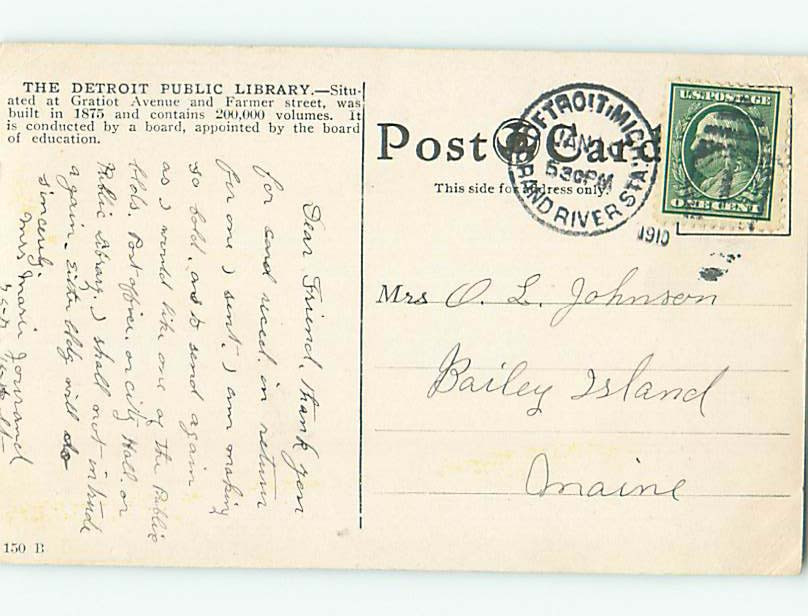 THE DETROIT PUBLIC LIBRARY.—Situ-
ated at Gratiot Avenue and Farmer street, was
built in 1875 and contains 200,000 volumes. It
is conducted by a board, appointed by the board
of education.
Post Card
This side for address only.
DETROIT, MICH.
JAN
530PM
1910
GRAND RIVER STA.
U.S. POSTAGE
ONE CENT
Mrs O. L. Johnson
Bailey Island
Maine
Dear Friend. Thank you
for card recd. in return
for one I sent. I am making
so bold, as to send again
as I would like one of the Public
bldg. Post office. or City Hall. or
Public Library. I shall not intrude
again. Either bldg will do
Sincerely.
Mrs Marie
150 B